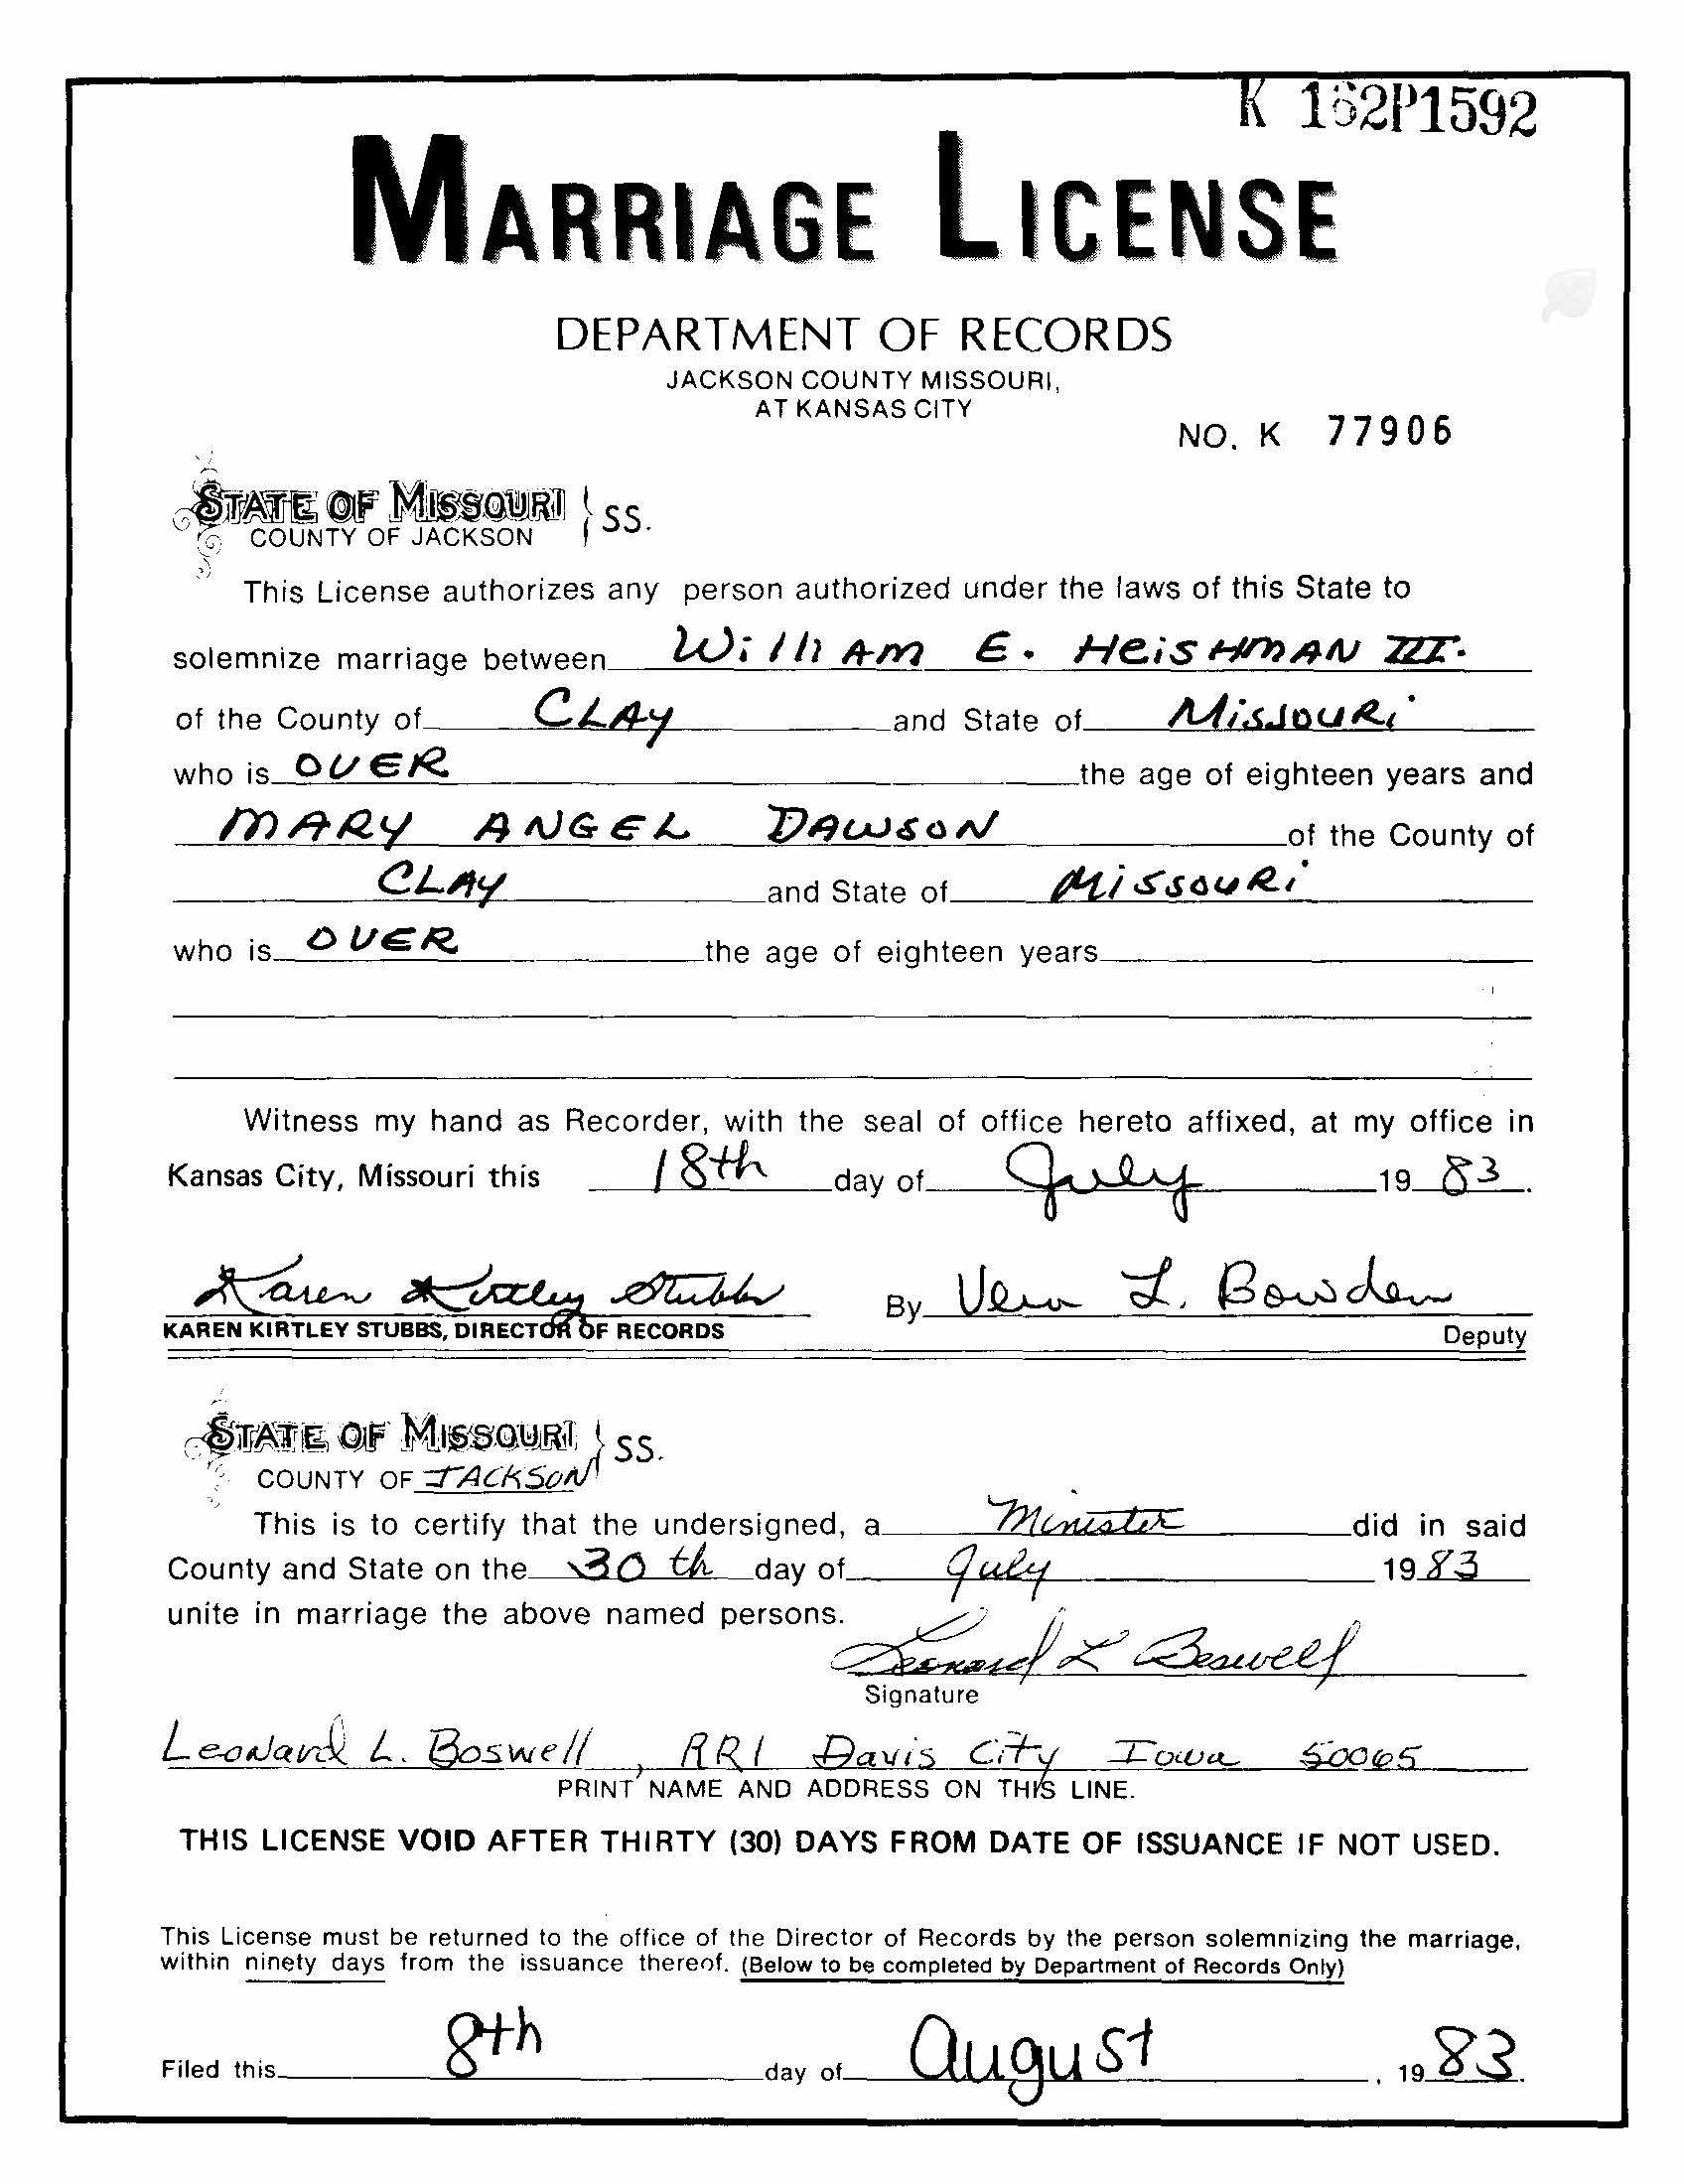 K 162P1592
MARRIAGE LICENSE
DEPARTMENT OF RECORDS
JACKSON COUNTY MISSOURI,
AT KANSAS CITY
NO. K 77906
STATE OF MISSOURI } SS.
COUNTY OF JACKSON
This License authorizes any person authorized under the laws of this State to
solemnize marriage between William E. Heishman III.
of the County of CLAY and State of Missouri
who is OVER the age of eighteen years and
MARY ANGEL DAWSON of the County of
CLAY and State of Missouri
who is OVER the age of eighteen years
Witness my hand as Recorder, with the seal of office hereto affixed, at my office in
Kansas City, Missouri this 18th day of July 19 83.
Karen Kirtley Stubbs By Vera L. Bowden
KAREN KIRTLEY STUBBS, DIRECTOR OF RECORDS Deputy
STATE OF MISSOURI } SS.
COUNTY OF JACKSON
This is to certify that the undersigned, a Minister did in said
County and State on the 30th day of July 1983
unite in marriage the above named persons.
Leonard L Boswell
Signature
Leonard L. Boswell, RR1 Davis City Iowa 50065
PRINT NAME AND ADDRESS ON THIS LINE.
THIS LICENSE VOID AFTER THIRTY (30) DAYS FROM DATE OF ISSUANCE IF NOT USED.
This License must be returned to the office of the Director of Records by the person solemnizing the marriage,
within ninety days from the issuance thereof. (Below to be completed by Department of Records Only)
Filed this 8th day of August, 19 83.